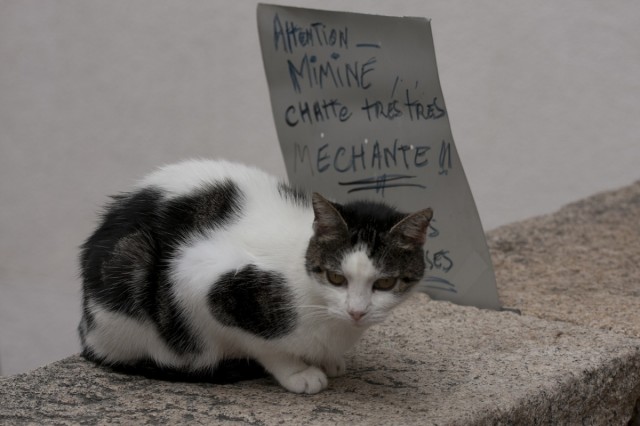 Attention _
MiMiNE
CHATTE TRÉS TRÉS
MECHANTE !!